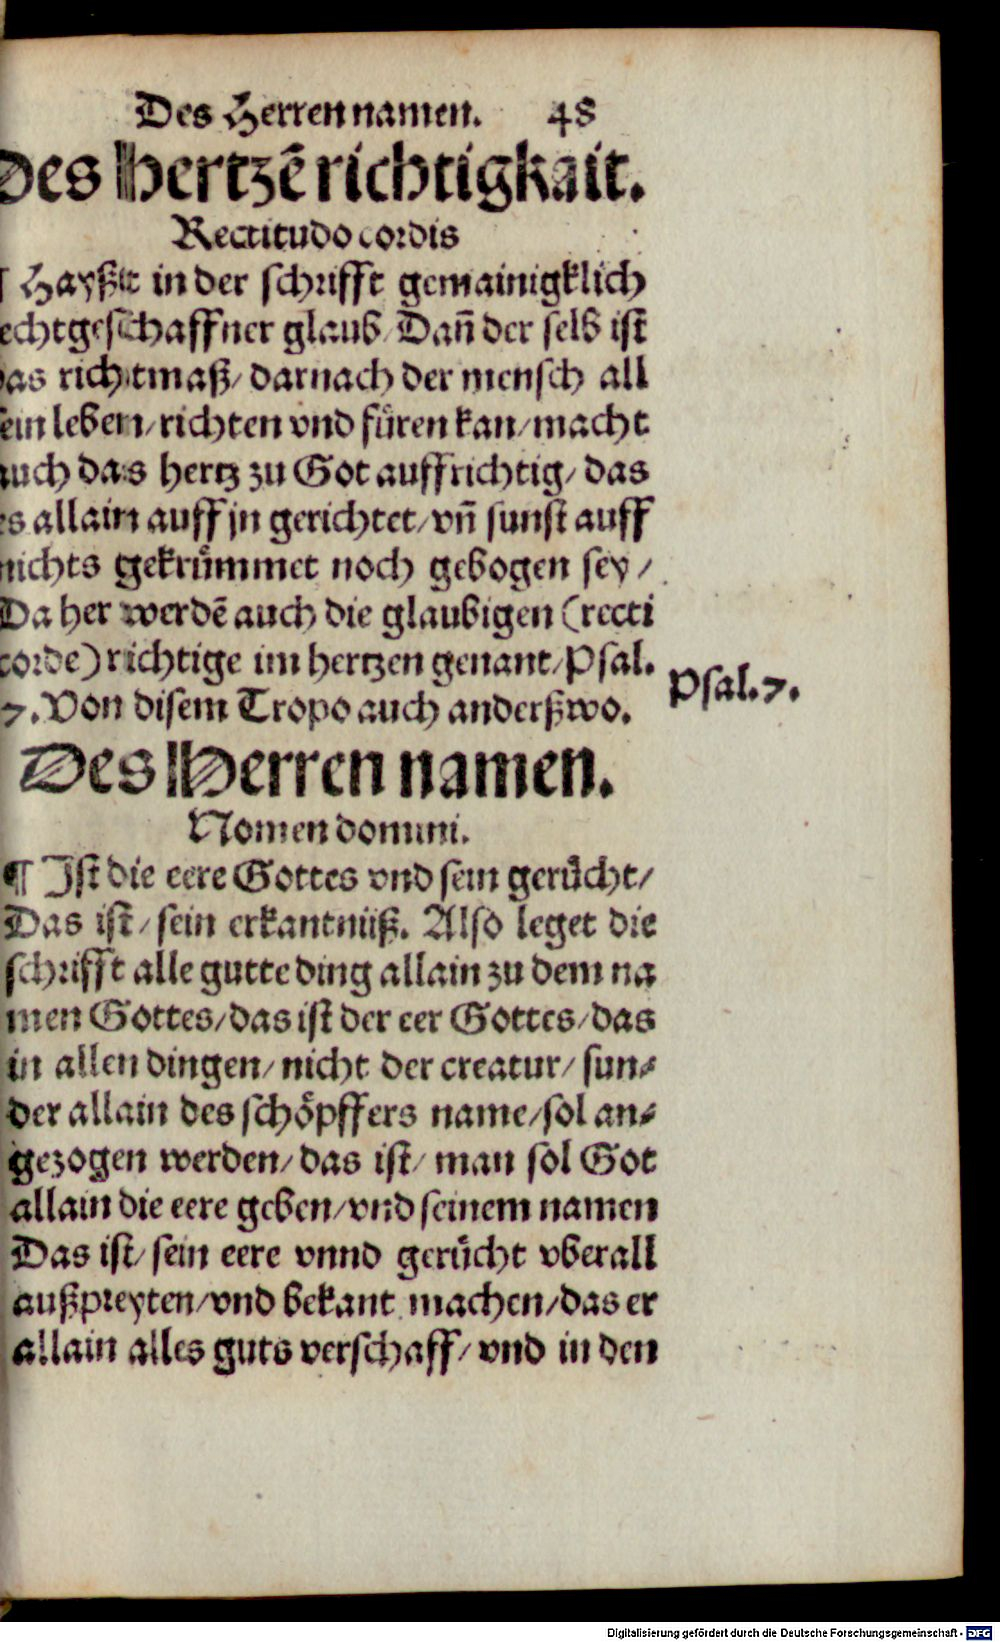 Des Herren namen. 48
Des Hertzē richtigkait.
Rectitudo cordis
¶ Hayßt in der schrifft gemainigklich
echtgeschaffner glaub/ Dañ der selb ist
as richtmaß/ darnach der mensch all
ein leben/ richten vnd fuͤren kan/ macht
auch das hertz zu Got auffrichtig/ das
es allain auff jn gerichtet/ vñ sunst auff
nichts gekruͤmmet noch gebogen sey/
Da her werdē auch die glaubigen (recti
corde) richtige im hertzen genant/ Psal.
7. Von disem Tropo auch anderßwo.
Psal. 7.
Des Herren namen.
Nomen domini.
¶ Ist die eere Gottes vnd sein geruͤcht/
Das ist/ sein erkantnüß. Also leget die
schrifft alle gutte ding allain zu dem na
men Gottes/ das ist der eer Gottes/ das
in allen dingen/ nicht der creatur/ sun⸗
der allain des schoͤpffers name/ sol an⸗
gezogen werden/ das ist/ man sol Got
allain die eere geben/ vnd seinem namen
Das ist/ sein eere vnnd geruͤcht vberall
außpreyten/ vnd bekant machen/ das er
allain alles guts verschaff/ vnd in den
Digitalisierung gefördert durch die Deutsche Forschungsgemeinschaft - DFG